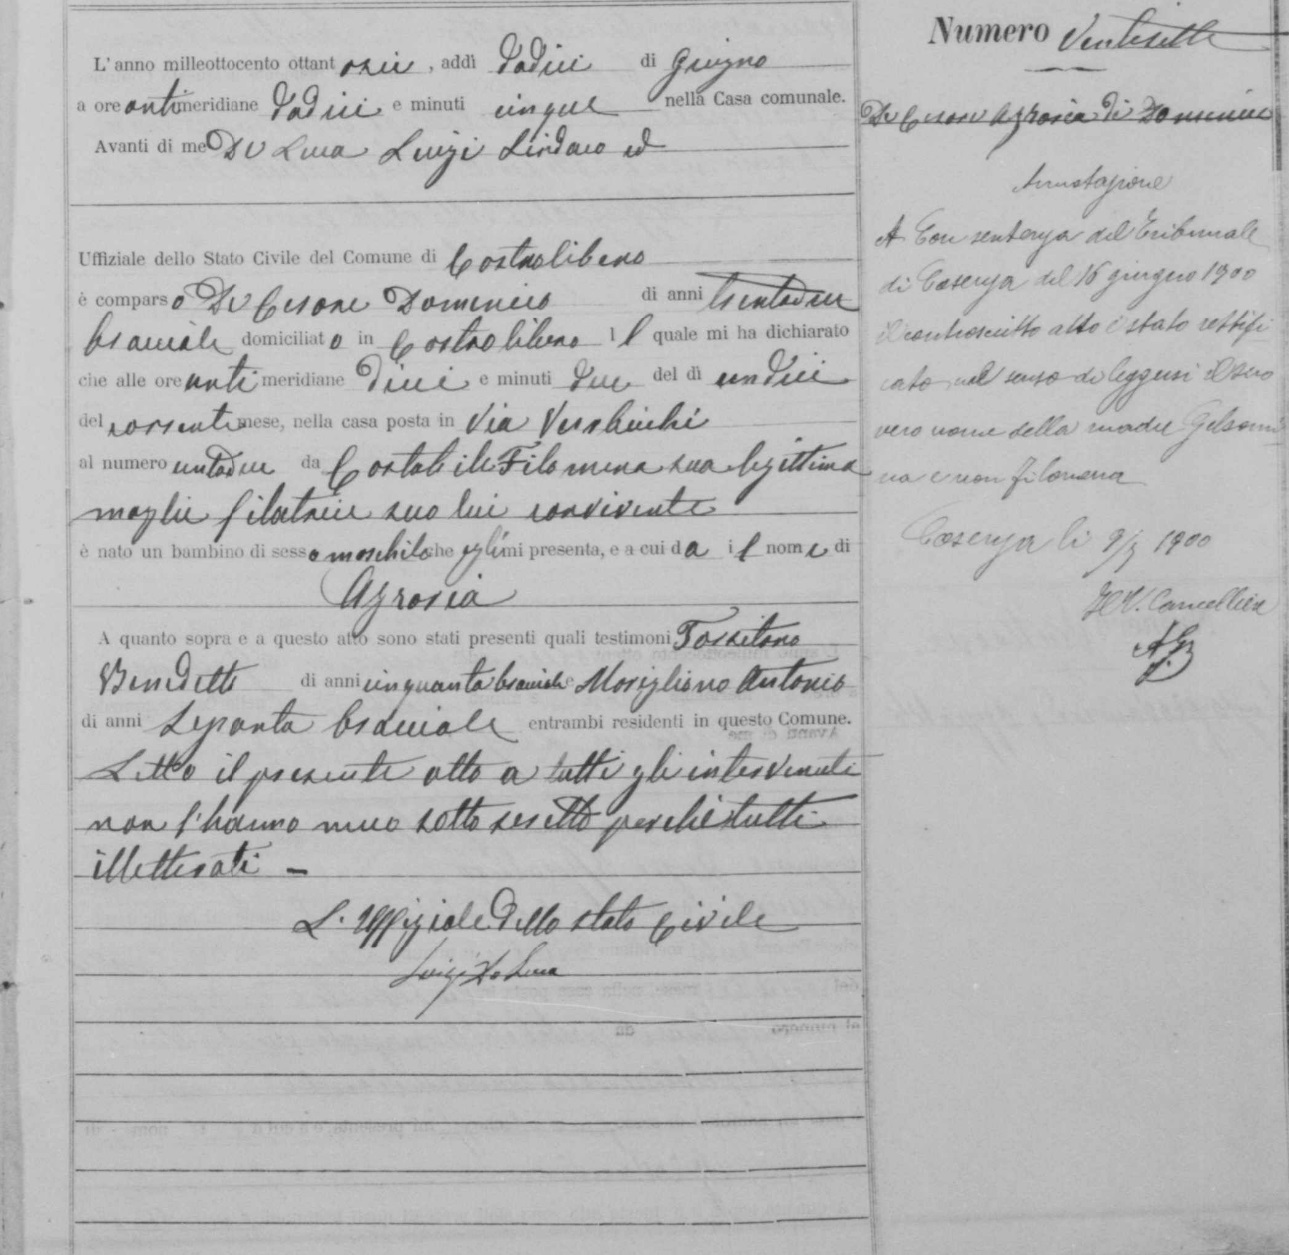 Numero Ventisette
L'anno milleottocento ottantasei, addì dodici di Giugno
a ore antimeridiane dodici e minuti cinque nella Casa comunale.
Avanti di me De Luca Luigi Sindaco ed
Uffiziale dello Stato Civile del Comune di Castrolibero
è comparso De Cesare Domenico di anni trentadue
bracciale domiciliato in Castrolibero il quale mi ha dichiarato
che alle ore antimeridiane dieci e minuti due del dì undici
del corrente mese, nella casa posta in Via
al numero da Costabile Filomena sua legittima
moglie filatrice seco lui convivente
è nato un bambino di sesso maschile che egli mi presenta, e a cui dà il nome di
A quanto sopra e a questo atto sono stati presenti quali testimoni Torsitano
Benedetto di anni cinquanta bracciale e Morigliano Antonio
di anni bracciale entrambi residenti in questo Comune.
Letto il presente atto a tutti gli intervenuti
non l'hanno meco sottoscritto perché tutti
illetterati –
L'Uffiziale dello stato Civile
Luigi De Luca
De Cesare di Domenico
Annotazione
A Con sentenza del Tribunale
di Cosenza del 16 giugno 1900
il controscritto atto è stato rettifi
cato nel senso di leggersi il
vero nome della madre Gelsomi
na e non Filomena
Cosenza li 1900
Cancelliere